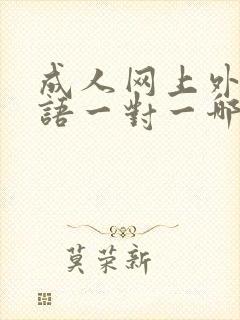 成人网上外
語一對一哪
莫荣新